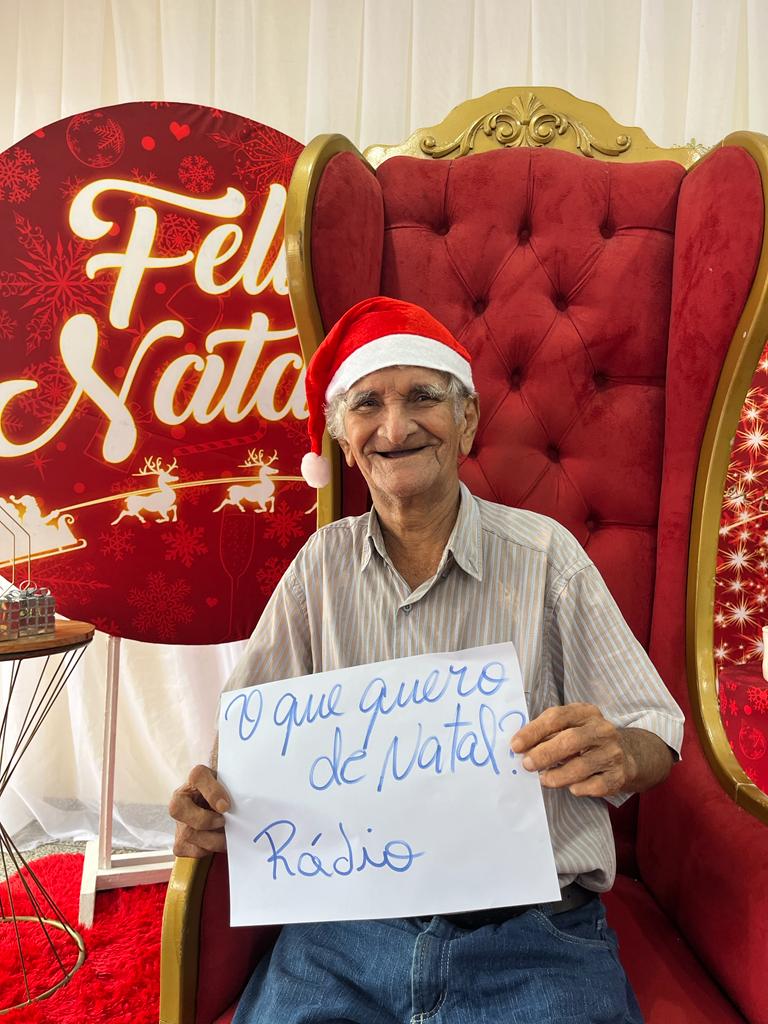 Feliz
Natal
O que quero
de Natal?
Rádio